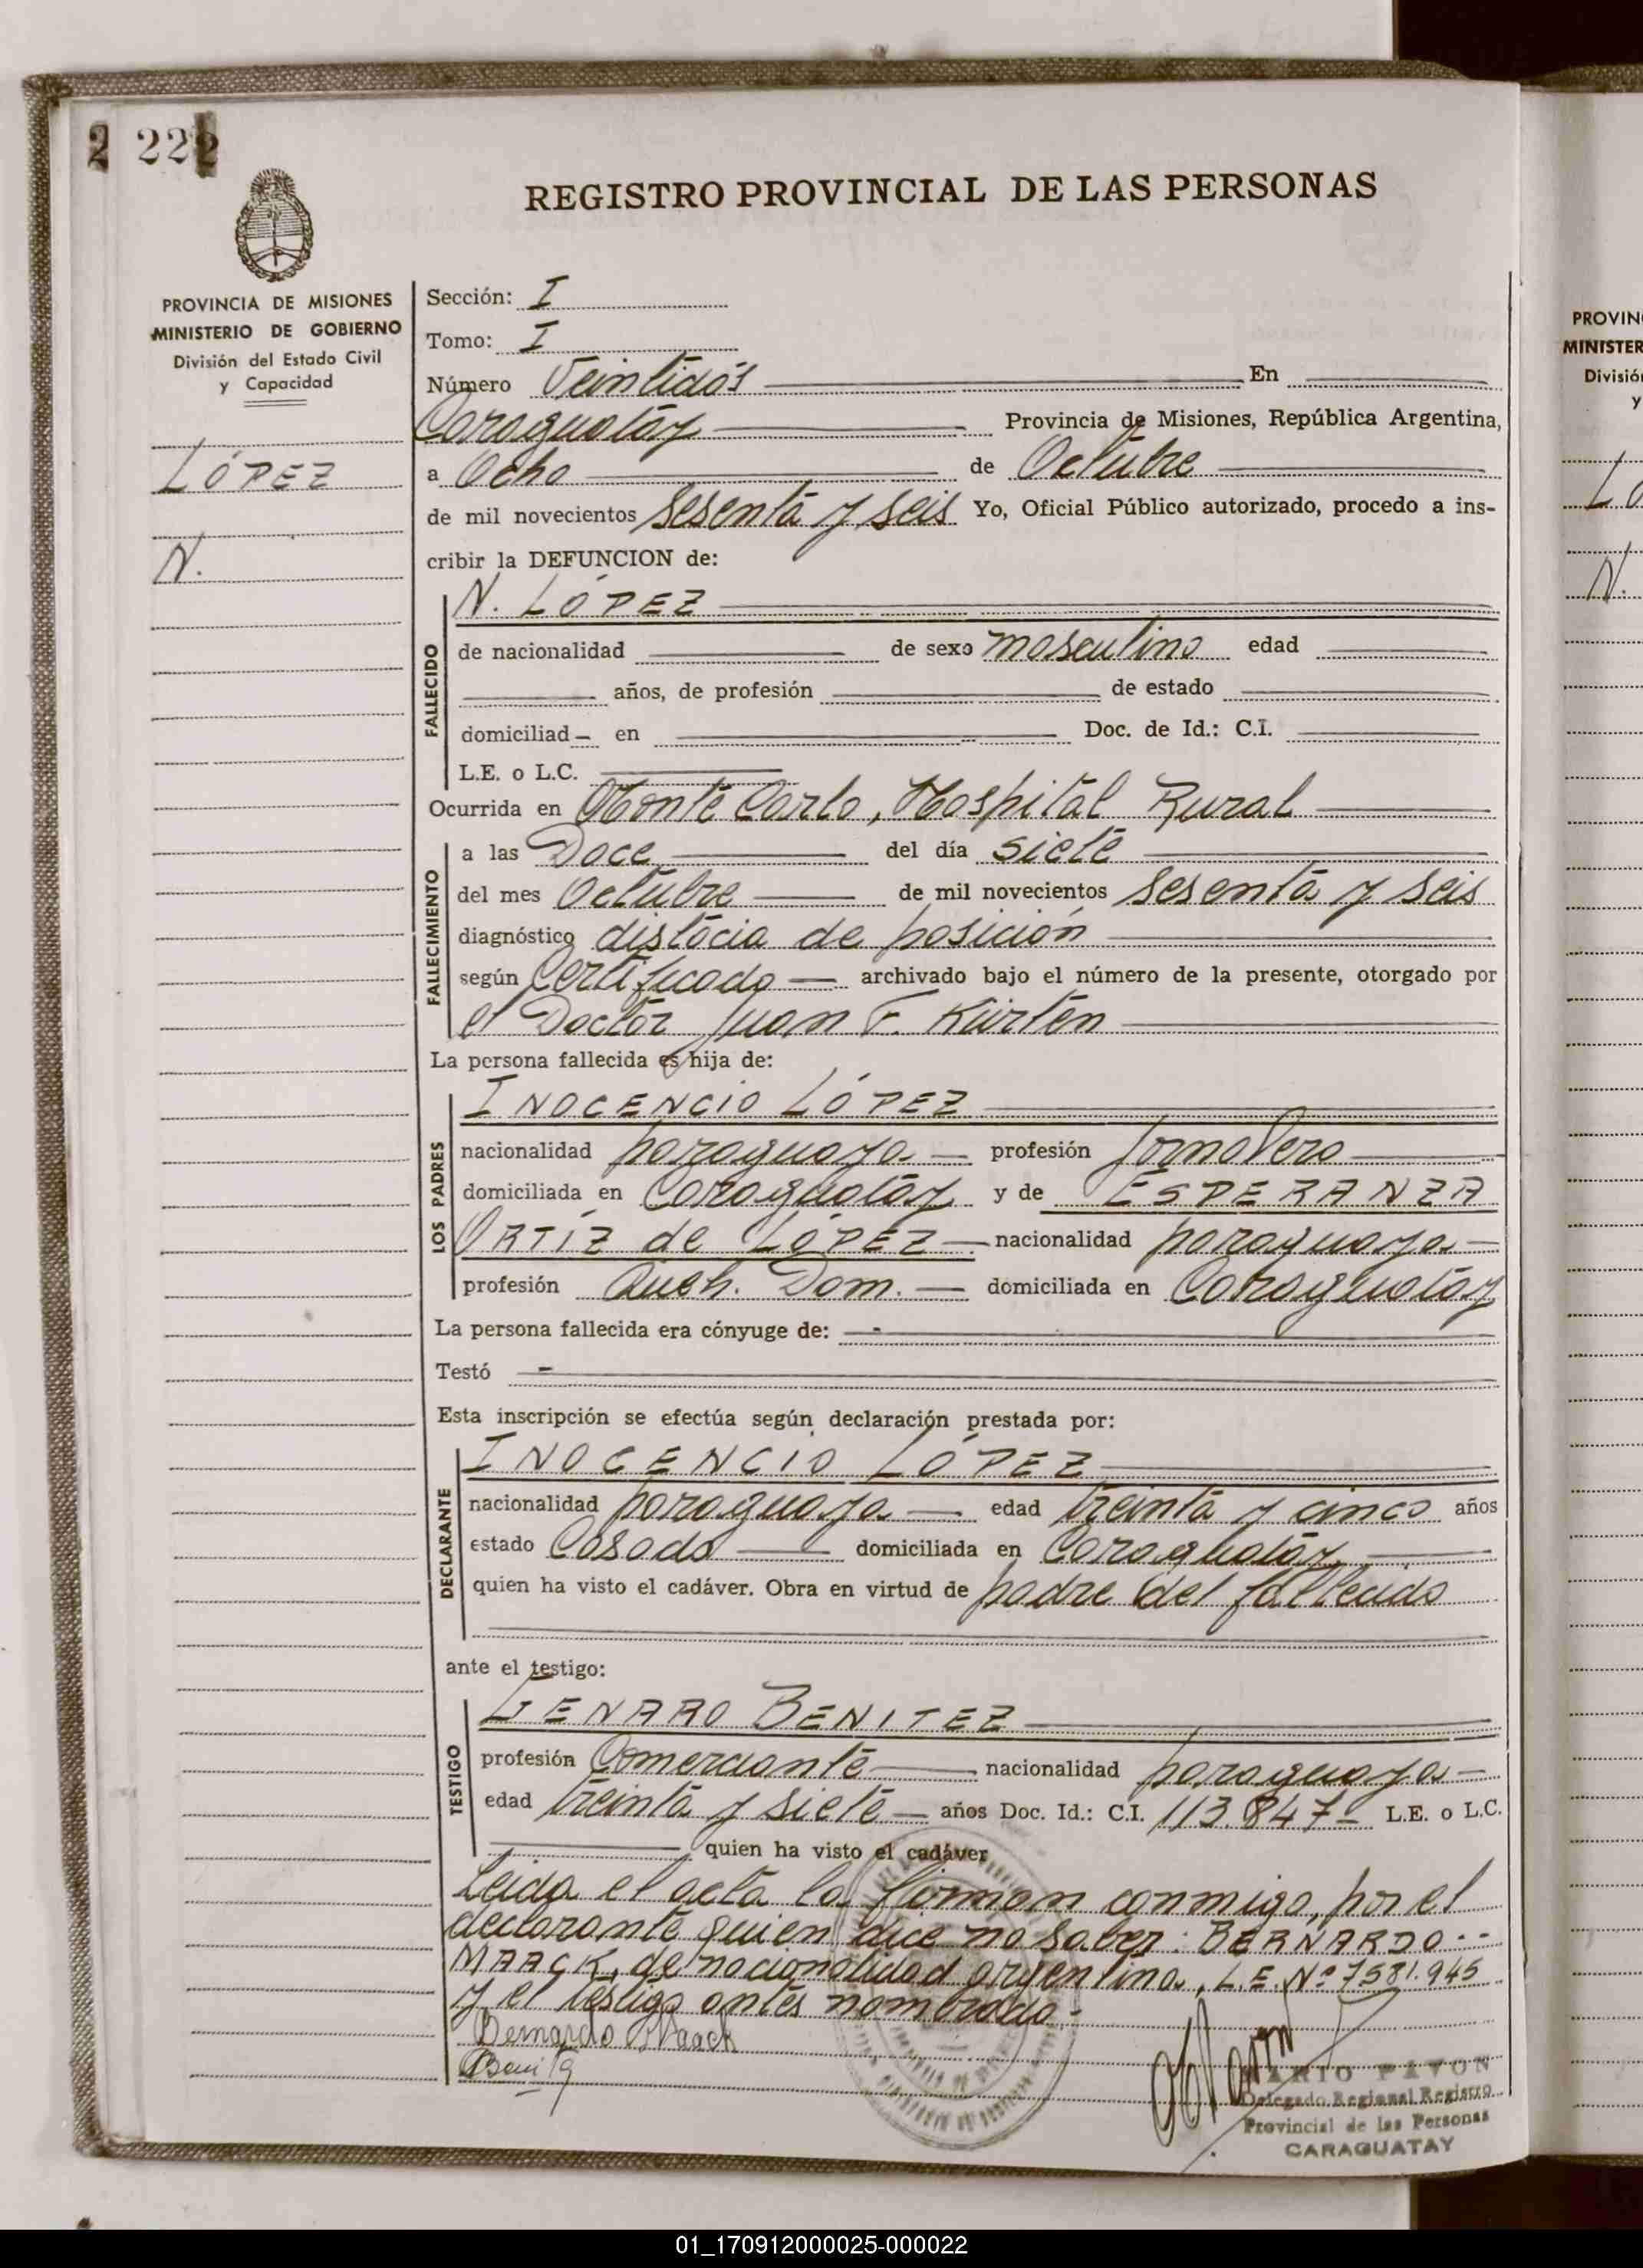 2 222
REGISTRO PROVINCIAL DE LAS PERSONAS
PROVINCIA DE MISIONES
MINISTERIO DE GOBIERNO
División del Estado Civil
y Capacidad
LÓPEZ
N.
Sección: I
Tomo: I
Número Veintidós En
Caraguatáy Provincia de Misiones, República Argentina,
a Ocho de Octubre
de mil novecientos sesenta y seis Yo, Oficial Público autorizado, procedo a ins-
cribir la DEFUNCION de:
N. LÓPEZ
FALLECIDO
de nacionalidad de sexo masculino edad
años, de profesión de estado
domiciliad en Doc. de Id.: C.I.
L.E. o L.C.
Ocurrida en Monte Carlo, Hospital Rural
FALLECIMIENTO
a las Doce del día siete
del mes Octubre de mil novecientos sesenta y seis
diagnóstico distocia de posición
según Certificado archivado bajo el número de la presente, otorgado por
el Doctor Juan F. Kürten
La persona fallecida es hija de:
LOS PADRES
INOCENCIO LÓPEZ
nacionalidad paraguaya profesión Jornalero
domiciliada en Caraguatáy y de ESPERANZA
ORTÍZ de LÓPEZ nacionalidad paraguaya
profesión Queh. Dom. domiciliada en Caraguatáy
La persona fallecida era cónyuge de: -
Testó -
Esta inscripción se efectúa según declaración prestada por:
DECLARANTE
INOCENCIO LÓPEZ
nacionalidad paraguaya edad treinta y cinco años
estado Casado domiciliada en Caraguatáy
quien ha visto el cadáver. Obra en virtud de padre del fallecido
ante el testigo:
TESTIGO
GENARO BENITEZ
profesión Comerciante nacionalidad paraguaya
edad treinta y siete años Doc. Id.: C.I. 113.847 L.E. o L.C.
quien ha visto el cadáver
Leida el acta la firman conmigo, por el
declarante quien dice no saber: BERNARDO --
MAACK, de nacionalidad argentina, L.E. Nº 7581.945
y el testigo antes nombrado.-
Bernardo Maack
MARIO PAVON
Delegado Regional Registro
Provincial de las Personas
CARAGUATAY
PROVIN
MINISTER
Divisió
y
LÓ
N.
01_170912000025-000022